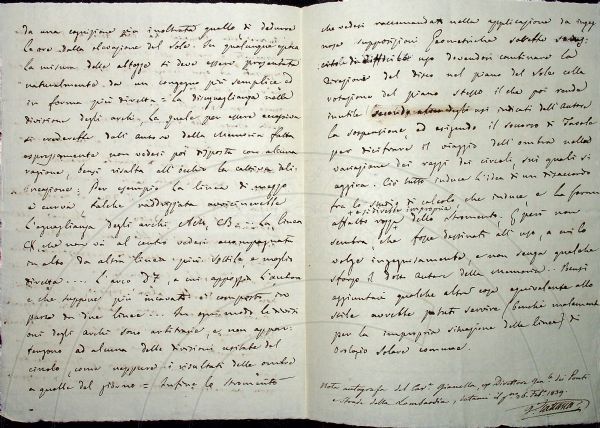 da una cognizione più inoltrata quella di dedurre
la ora dalla elevazione del Sole. In qualunque epoca
la misura delle altezze si deve essere presentata
naturalmente da un congegno più semplice ed
in forma più diretta = la disuguaglianza nelle
divisioni degli archi, la quale per essere eccessiva
si crederebbe dall'autore della Memoria fatta
espressamente non vedesi poi disposta con alcuna
ragione, bensì risulta all'occhio la cattiva
Per esempio la linea di mezzo
è curva talché raddrizzata
l'eguaglianza degli archi la linea
che non va al centro vedesi accompagnata
in alto da altra linea più sottile e meglio
diretta ... L'arco a cui appoggia l'autore
e che suppone più incavato è composto in
parte di due linee ... In ogni modo le divisi
oni degli archi sono arbitrarie, e non appar
tengono ad alcuna delle divisioni usitate del
circolo, come neppure i risultati delle ombre
a quelle del giorno = Infine lo stromento
che vedesi raccomandato nella applicazione da inge
gnose supposizioni Geometriche
uso dovendosi continuare la
direzione del disco nel piano del Sole colla
rotazione del piano stesso il che poi rende
inutile secondo degli usi indicati dall'Autore
la sospensione, ed esigendo il soccorso di Tavole
per decifrare il viaggio dell'ombra nella
variazione dei raggi dei circoli, sui quali si
aggira. Ciò tutto induce l'idea di un disaccordo
fra lo studio di calcolo, che induce, e la forma
affatto rozza dello stromento, e però non
sembra, che fosse destinato all'uso, a cui lo
volge ingegnosamente, e non senza qualche
sforzo il dotto autore della Memoria. Bensì
aggiuntavi qualche altra cosa equivalente allo
stile avrebbe potuto servire (benché malamente
per la impropria situazione delle linee) di
Orologio Solare comune.
Nota autografa del Cav. Gianella, ex Direttore Gen. dei Ponti
e Strade della Lombardia,